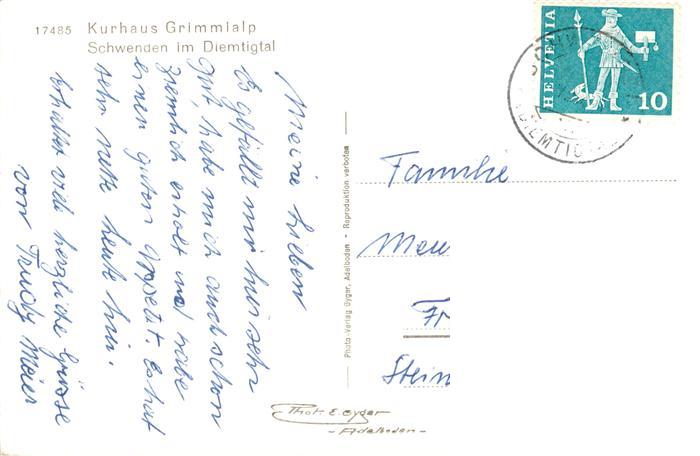 17485 Kurhaus Grimmialp
Schwenden im Diemtigtal
Meine Lieben
Es gefällt mir hier sehr
gut, habe mich auch schon
ziemlich erholt und habe
einen guten Appetit. Es hat
sehr nette Leute hier.
Erhaltet viele herzliche Grüsse
von Trudy Meier
Photo-Verlag Gyger, Adelboden - Reproduktion verboten
HELVETIA
10
DIEMTIGTAL
Familie
Meu
Fr
Stein
Phot. E. Gyger
- Adelboden -